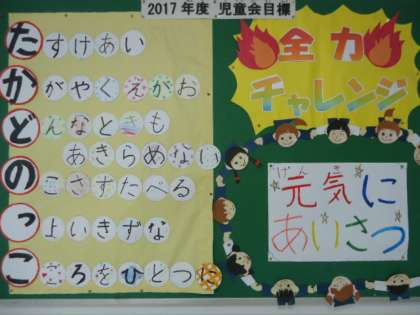 2017年度 児童会目標
たすけあい
かがやくえがお
どんなときも
あきらめない
のこさすたべる
っよいきずな
こころをひとつに
全力
チャレンジ
げん き
元気に
あいさつ